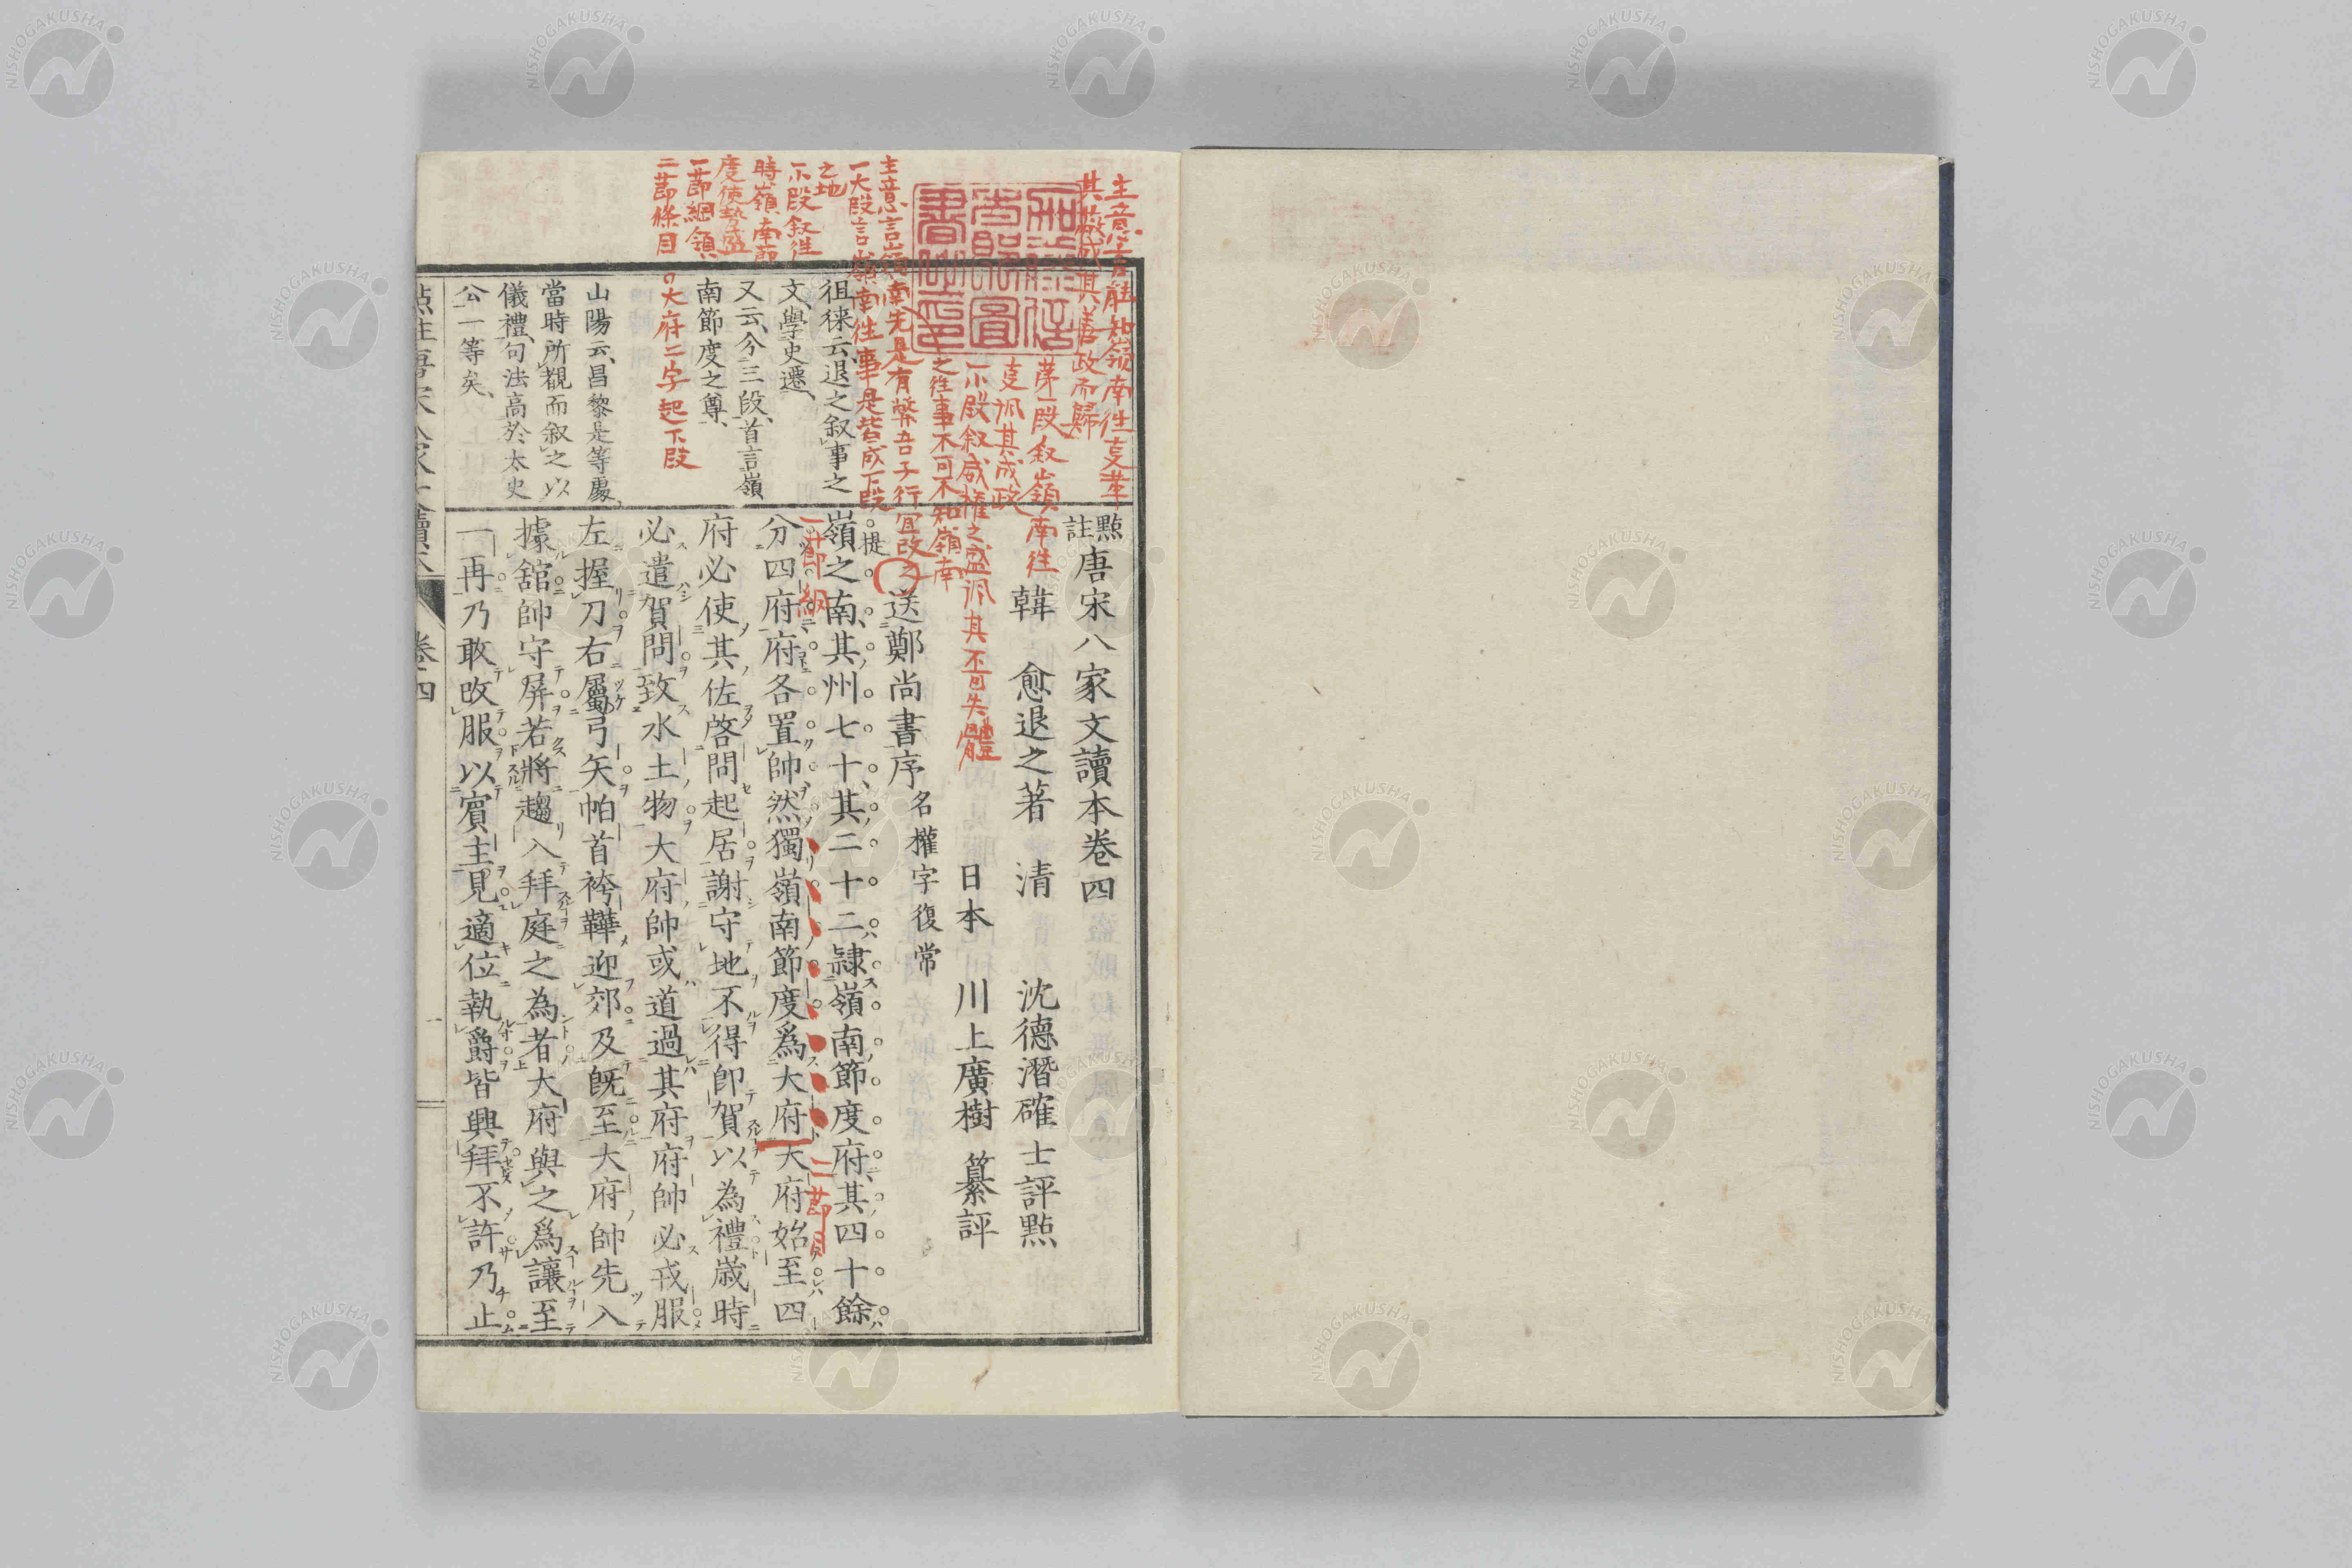 點註唐宋八家文讀本卷四
韓　愈退之著　清　沈德潛確士評點
日本　川上廣樹　纂評
送鄭尚書序 名權字復常
嶺之南其州七十其二十二隷嶺南節度府其四十餘
分四府府各置帥然獨嶺南節度爲大府大府始至四
府必使其佐啓問起居謝守地不得卽賀以為禮歲時
必遣賀問致水土物大府帥或道過其府府帥必戎服
左握刀右屬弓矢帕首袴鞾迎郊及旣至大府帥先入
據舘帥守屏若將趨入拜庭之為者大府與之爲讓至
一再乃敢改服以賓主見適位執爵皆興拜不許乃止
徂徠云退之叙事之
文學史遷
又云分三段首言嶺
南節度之尊
山陽云昌黎是等處
當時所觀而叙之以
儀禮句法高於太史
公一等矣
主意言能知嶺南往支革
其威其善政而歸
第一段叙嶺南往
支諷其成政
小段叙威權之盛諷其不可失體
之往事不可不知嶺南
主意言嶺南先是有弊吾子行宜改之
一大段言嶺南往事是皆成下段
之地
小段叙往
時嶺南節
度使勢盛
一節綱領
二節條目
大府二字起下段
一節綱
二節目
提
卷四
一
NISHOGAKUSHA